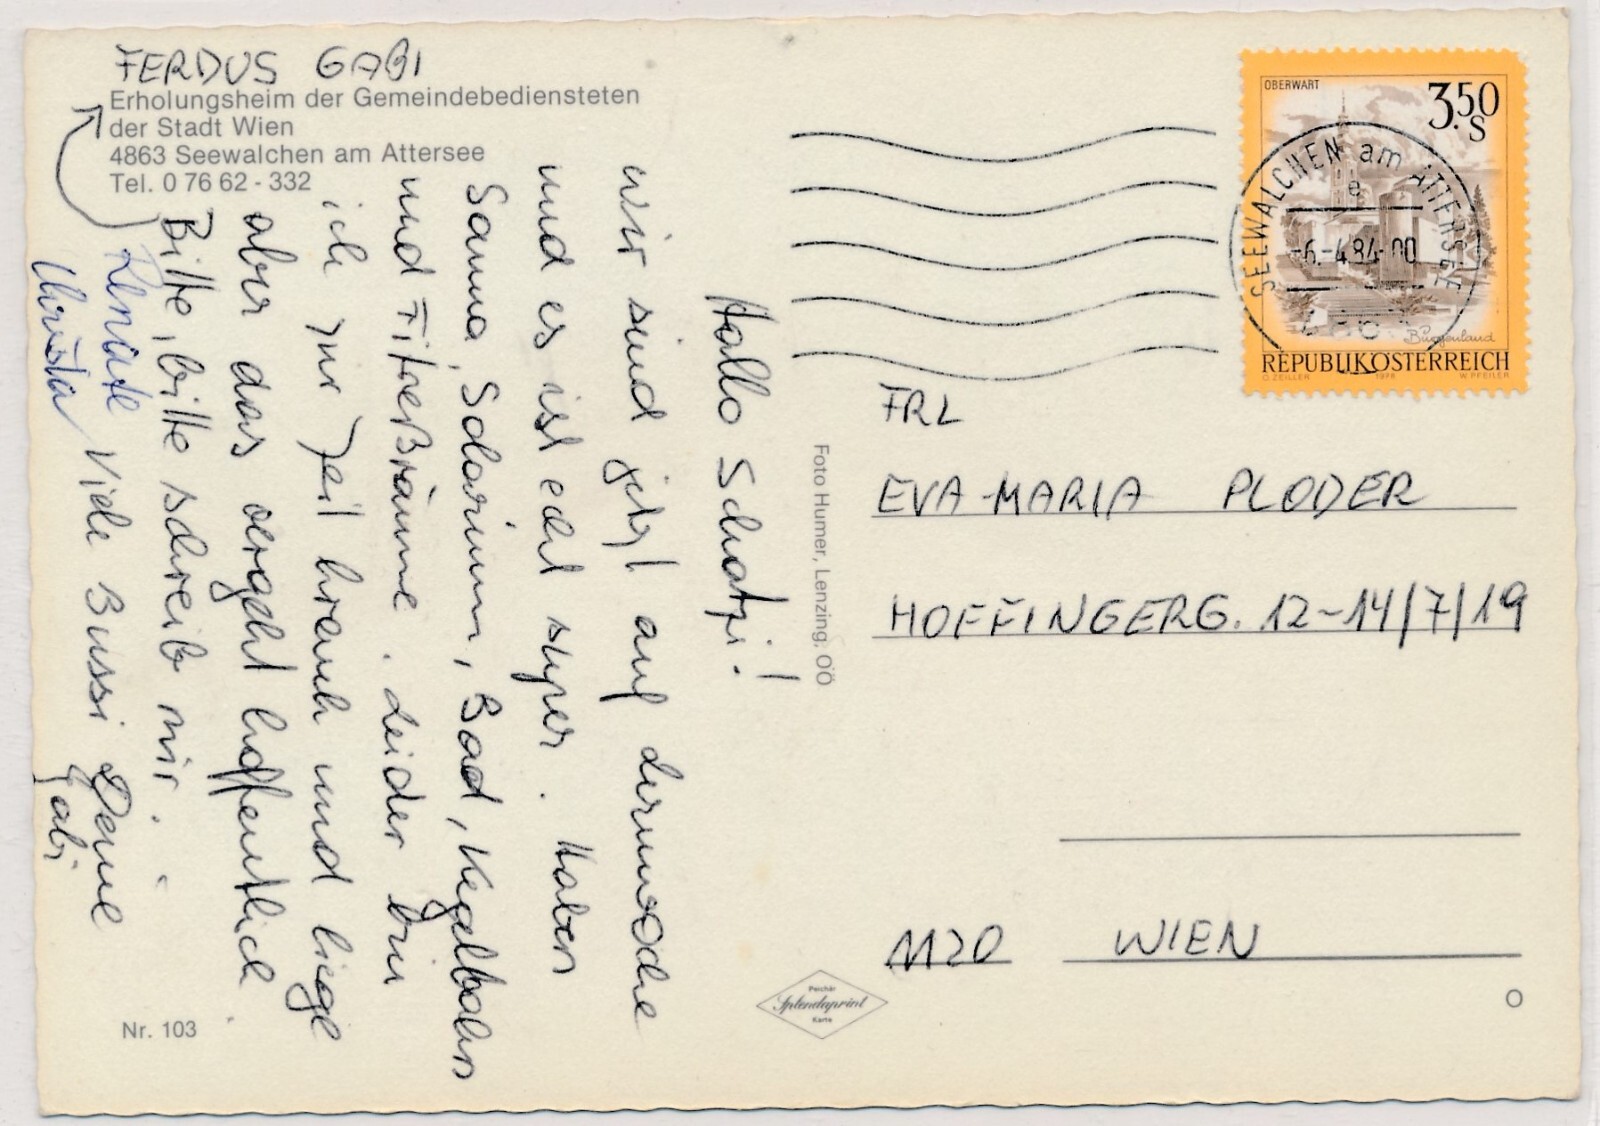 FERDUS GABI
Erholungsheim der Gemeindebediensteten
der Stadt Wien
4863 Seewalchen am Attersee
Tel. 0 76 62 - 332
Hallo Schatzi!
wir sind jetzt auf
und es ist echt super. Haben
Sauna, Solarium, Bad, Kegelbahn
und Fitneßräume. Leider bin
ich zur Zeit krank und liege
aber das vergeht hoffentlich
Bitte, bitte schreib mir.
Renate Viele Bussi Deine
Christa Gabi
Nr. 103
Foto Humer, Lenzing, OÖ
Perchar
Splendaprint
Karte
OBERWART
3.50
S
Burgenland
REPUBLIK ÖSTERREICH
O. ZEILLER 1978 W. PFEILER
SEEWALCHEN am ATTERSEE
e
-6.-4.84-00
FRL
EVA-MARIA PLODER
HOFFINGERG. 12-14/7/19
1120 WIEN
O